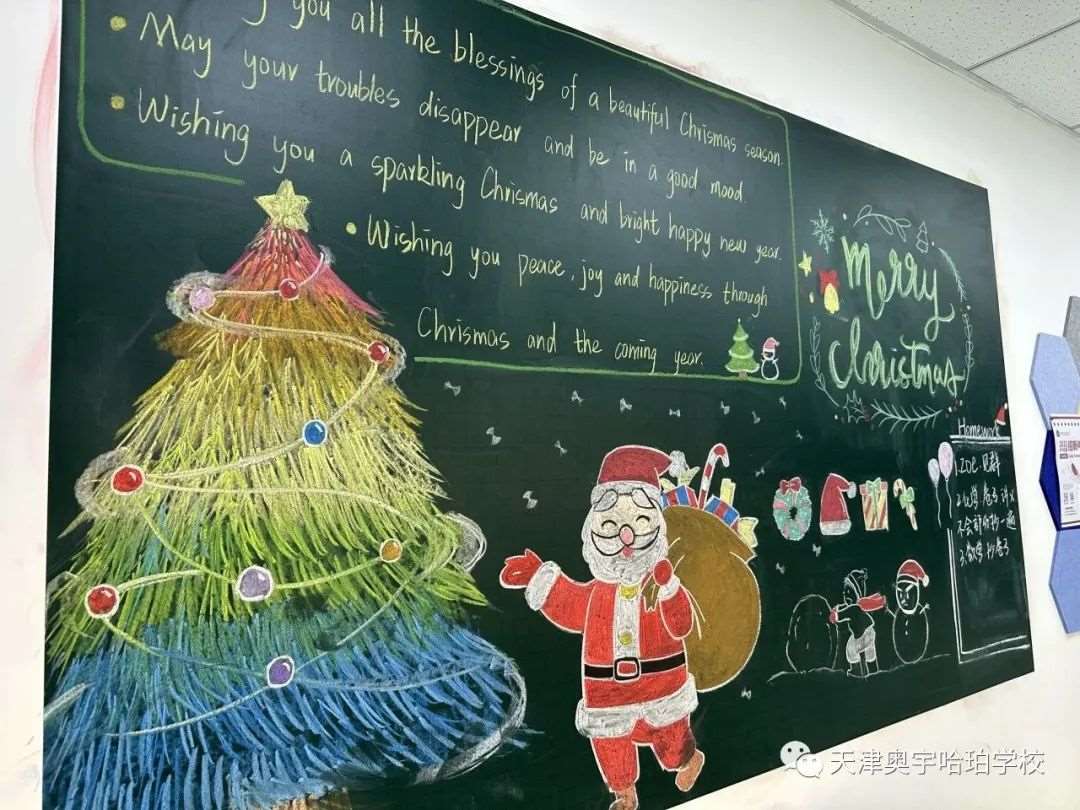 you all the blessings of a beautiful Chrismas season.
May your troubles disappear and be in a good mood.
Wishing you a sparkling Chrismas and bright happy new year.
Wishing you peace, joy and happiness through
Chrismas and the coming year.
Merry
Christmas
Homework
1.Zoe.见群
不会部份抄一遍
天津奥宇哈珀学校